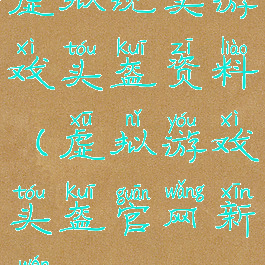 虚拟现实游
xì tóu kuī zī liào
戏头盔资料
xū nǐ yóu xì
（虚拟游戏
tóu kuī guān wǎng xīn
头盔官网新
wán